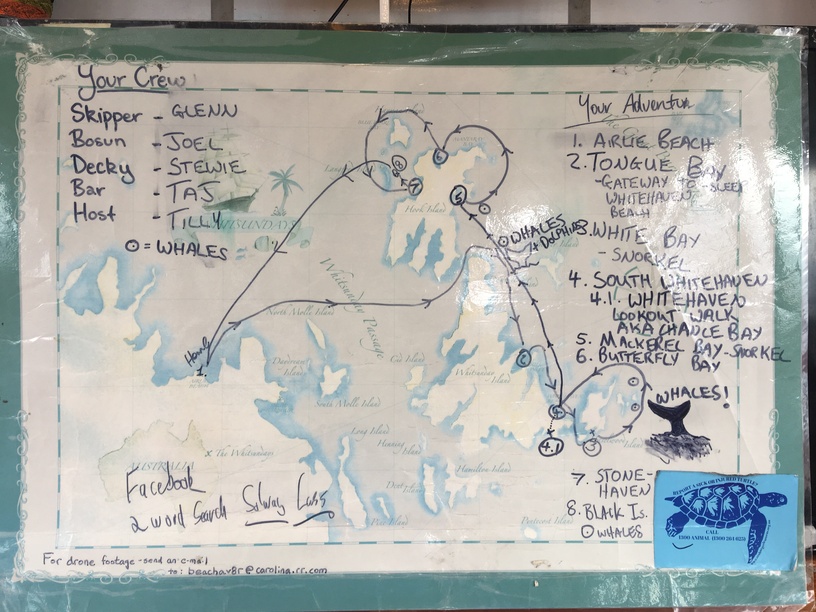 Your Crew
Skipper - GLENN
Bosun - JOEL
Decky - STEWIE
Bar - TAJ
Host - TILLY
⊙ = WHALES
Your Adventur
1. AIRLIE BEACH
2. TONGUE BAY
- GATEWAY TO - SLEEP
WHITEHAVEN
BEACH
3. WHITE BAY
- SNORKEL
4. SOUTH WHITEHAVEN
4.1. WHITEHAVEN
LOOKOUT WALK
AKA CHANCE BAY
5. MACKEREL BAY - SNORKEL
6. BUTTERFLY BAY
WHALES!
7. STONE-
HAVEN
8. BLACK IS.
⊙ WHALES
WHALES
+ DOLPHINS
8
7
6
5
2
4
4.1
3
Home
1
Hook Island
Whitsunday Passage
North Molle Island
Daydream Island
South Molle Island
Cid Island
Whitsunday Island
Long Island
Henning Island
Hamilton Island
Dent Island
Pine Island
Pentecost Island
WHITSUNDAYS
AUSTRALIA
x The Whitsundays
Facebook
2 word Search
For drone footage - send an e-mail
to: beachav8r@carolina.rr.com
REPORT A SICK OR INJURED TURTLE
CALL
1300 ANIMAL (1300 264 625)